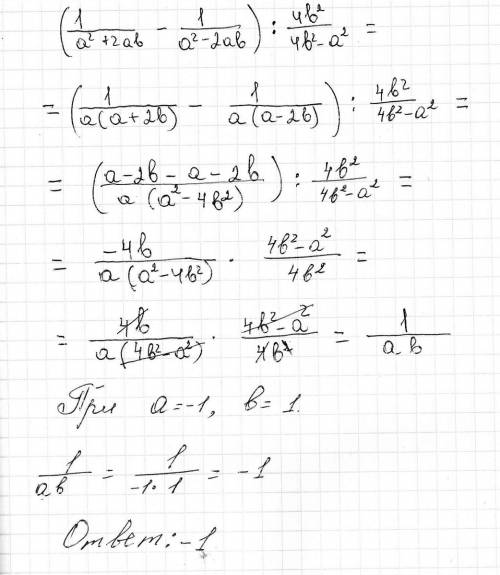 (1/(a²+2ab) − 1/(a²−2ab)) : 4b²/(4b²−a²) =
= (1/(a(a+2b)) − 1/(a(a−2b))) : 4b²/(4b²−a²) =
= ((a−2b−a−2b)/(a(a²−4b²))) : 4b²/(4b²−a²) =
= −4b/(a(a²−4b²)) · (4b²−a²)/4b² =
= 4b/(a(4b²−a²)) · (4b²−a²)/4b² = 1/(ab)
При a=−1, b=1.
1/(ab) = 1/(−1·1) = −1
Ответ: −1